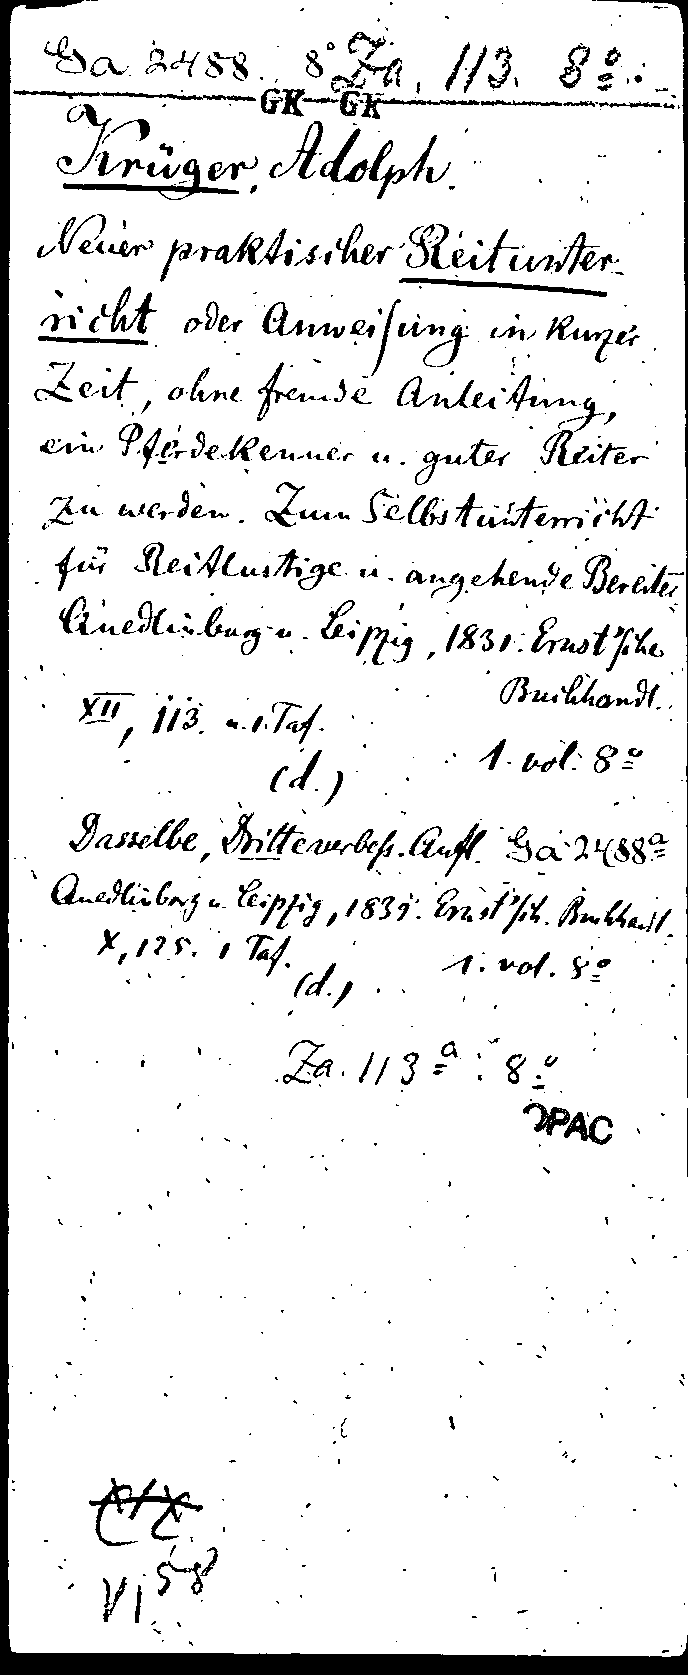 Ga 2488. 8° Za. 113. 8°.
GK GK
Krüger, Adolph.
Neuer praktischer Reitunter-
richt oder Anweisung in kurzer
Zeit, ohne fremde Anleitung,
ein Pferdekenner u. guter Reiter
zu werden. Zum Selbstunterricht
für Reitlustige u. angehende Bereiter
Quedlinburg u. Leipzig, 1831. Ernst'sche
Buchhandl.
XII, 113. u. 1. Taf.
(d.) 1. vol. 8°
Dasselbe, Dritte verbess. Aufl. Ga 2488a
Quedlinburg u. Leipzig, 1839. Ernst'sch. Buchhandl.
X, 125. 1 Taf.
(d.) 1. vol. 8°
Za. 113a. 8°
OPAC
VI 58